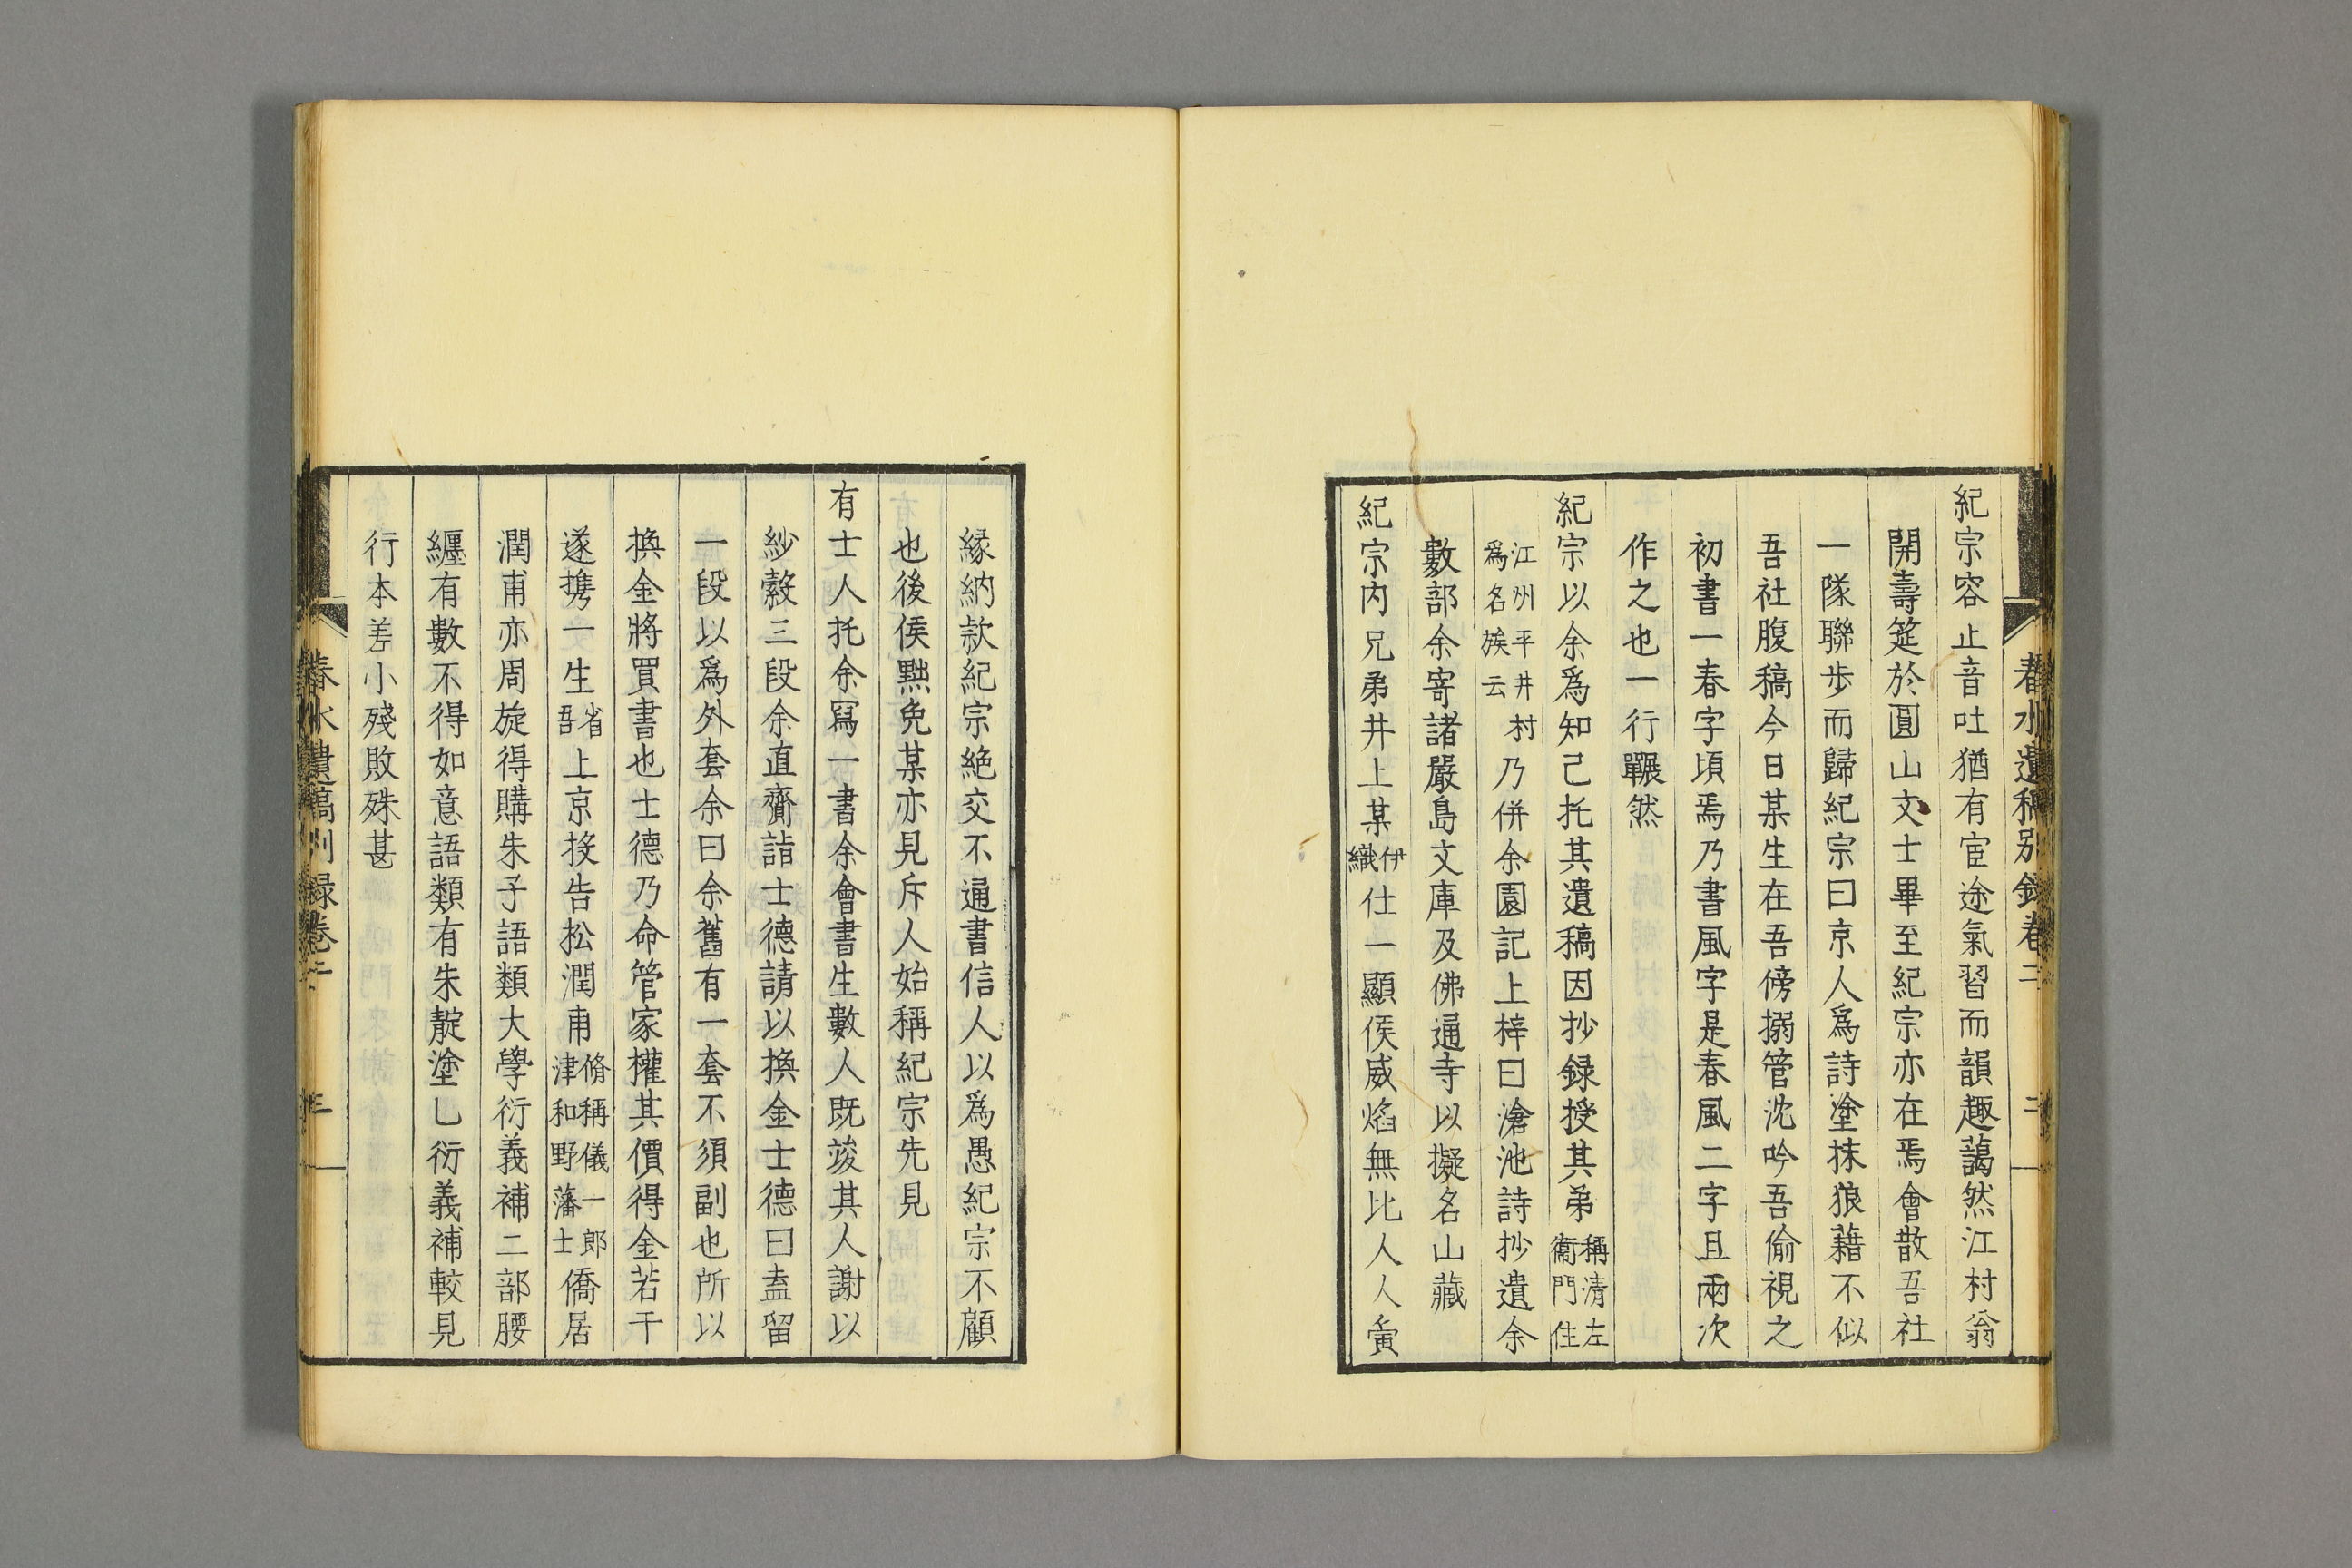 春水遺稿別錄卷二
二
紀宗容止音吐猶有宦途氣習而韻趣藹然江村翁
開壽筵於圓山文士畢至紀宗亦在焉會散吾社
一隊聯步而歸紀宗曰京人爲詩塗抹狼藉不似
吾社腹稿今日某生在吾傍搦管沈吟吾偷視之
初書一春字頃焉乃書風字是春風二字且兩次
作之也一行囅然
紀宗以余爲知己托其遺稿因抄録授其弟稱清左衞門住
江州平井村爲名族云乃併余園記上梓曰滄池詩抄遺余
數部余寄諸嚴島文庫及佛通寺以擬名山藏
紀宗内兄弟井上某伊織仕一顯侯威焰無比人人夤
緣納款紀宗絶交不通書信人以爲愚紀宗不顧
也後侯黜免某亦見斥人始稱紀宗先見
有士人托余寫一書余會書生數人既竣其人謝以
紗縠三段余直齎詣士德請以換金士德曰盍留
一段以爲外套余曰余舊有一套不須副也所以
換金將買書也士德乃命管家權其價得金若干
遂携一生省吾上京投告松潤甫脩稱儀一郎津和野藩士僑居
潤甫亦周旋得購朱子語類大學衍義補二部腰
纏有數不得如意語類有朱靛塗乚衍義補較見
行本差小殘敗殊甚
春水遺稿別録卷二
三